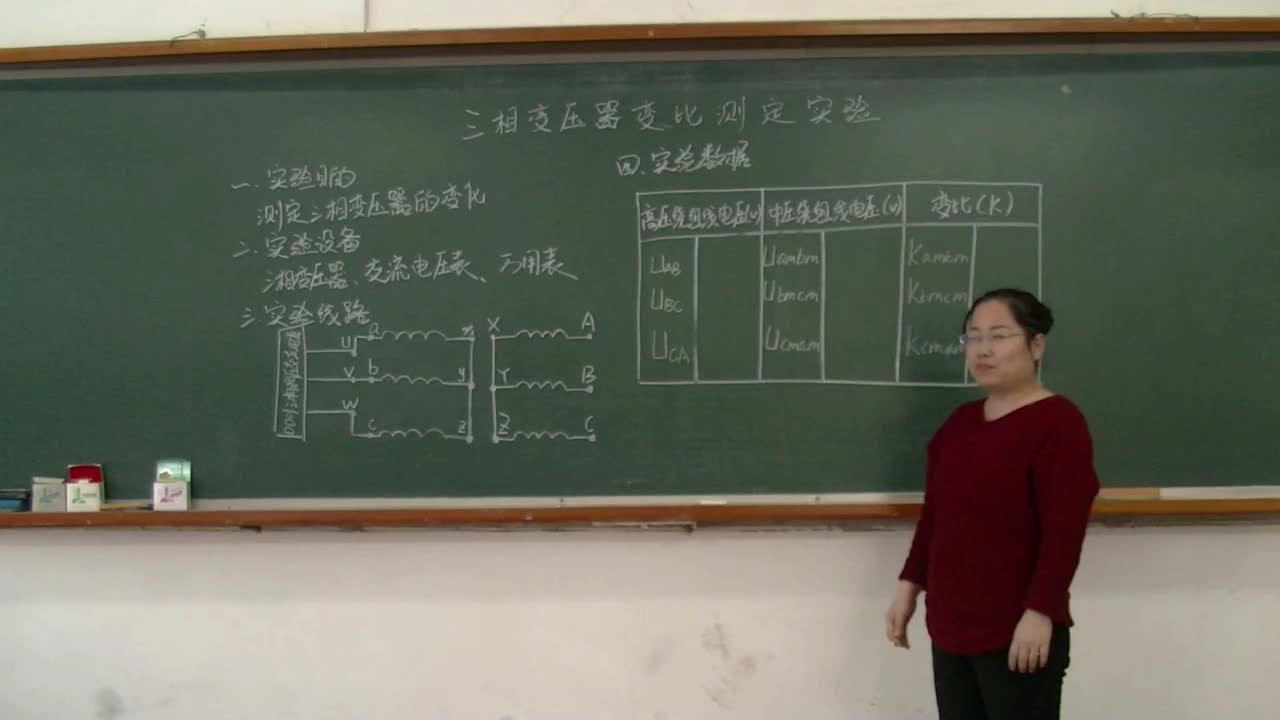 三相变压器变比测定实验
一.实验目的
测定三相变压器的变比
二.实验设备
三相变压器、交流电压表、万用表
三.实验线路
U a x X A
V b y Y B
W c z Z C
四.实验数据
高压绕组线电压(U) 中压绕组线电压(U) 变比(K)
UAB Uambm Kambm
UBC Ubmcm Kbmcm
UCA Ucmam Kcmam